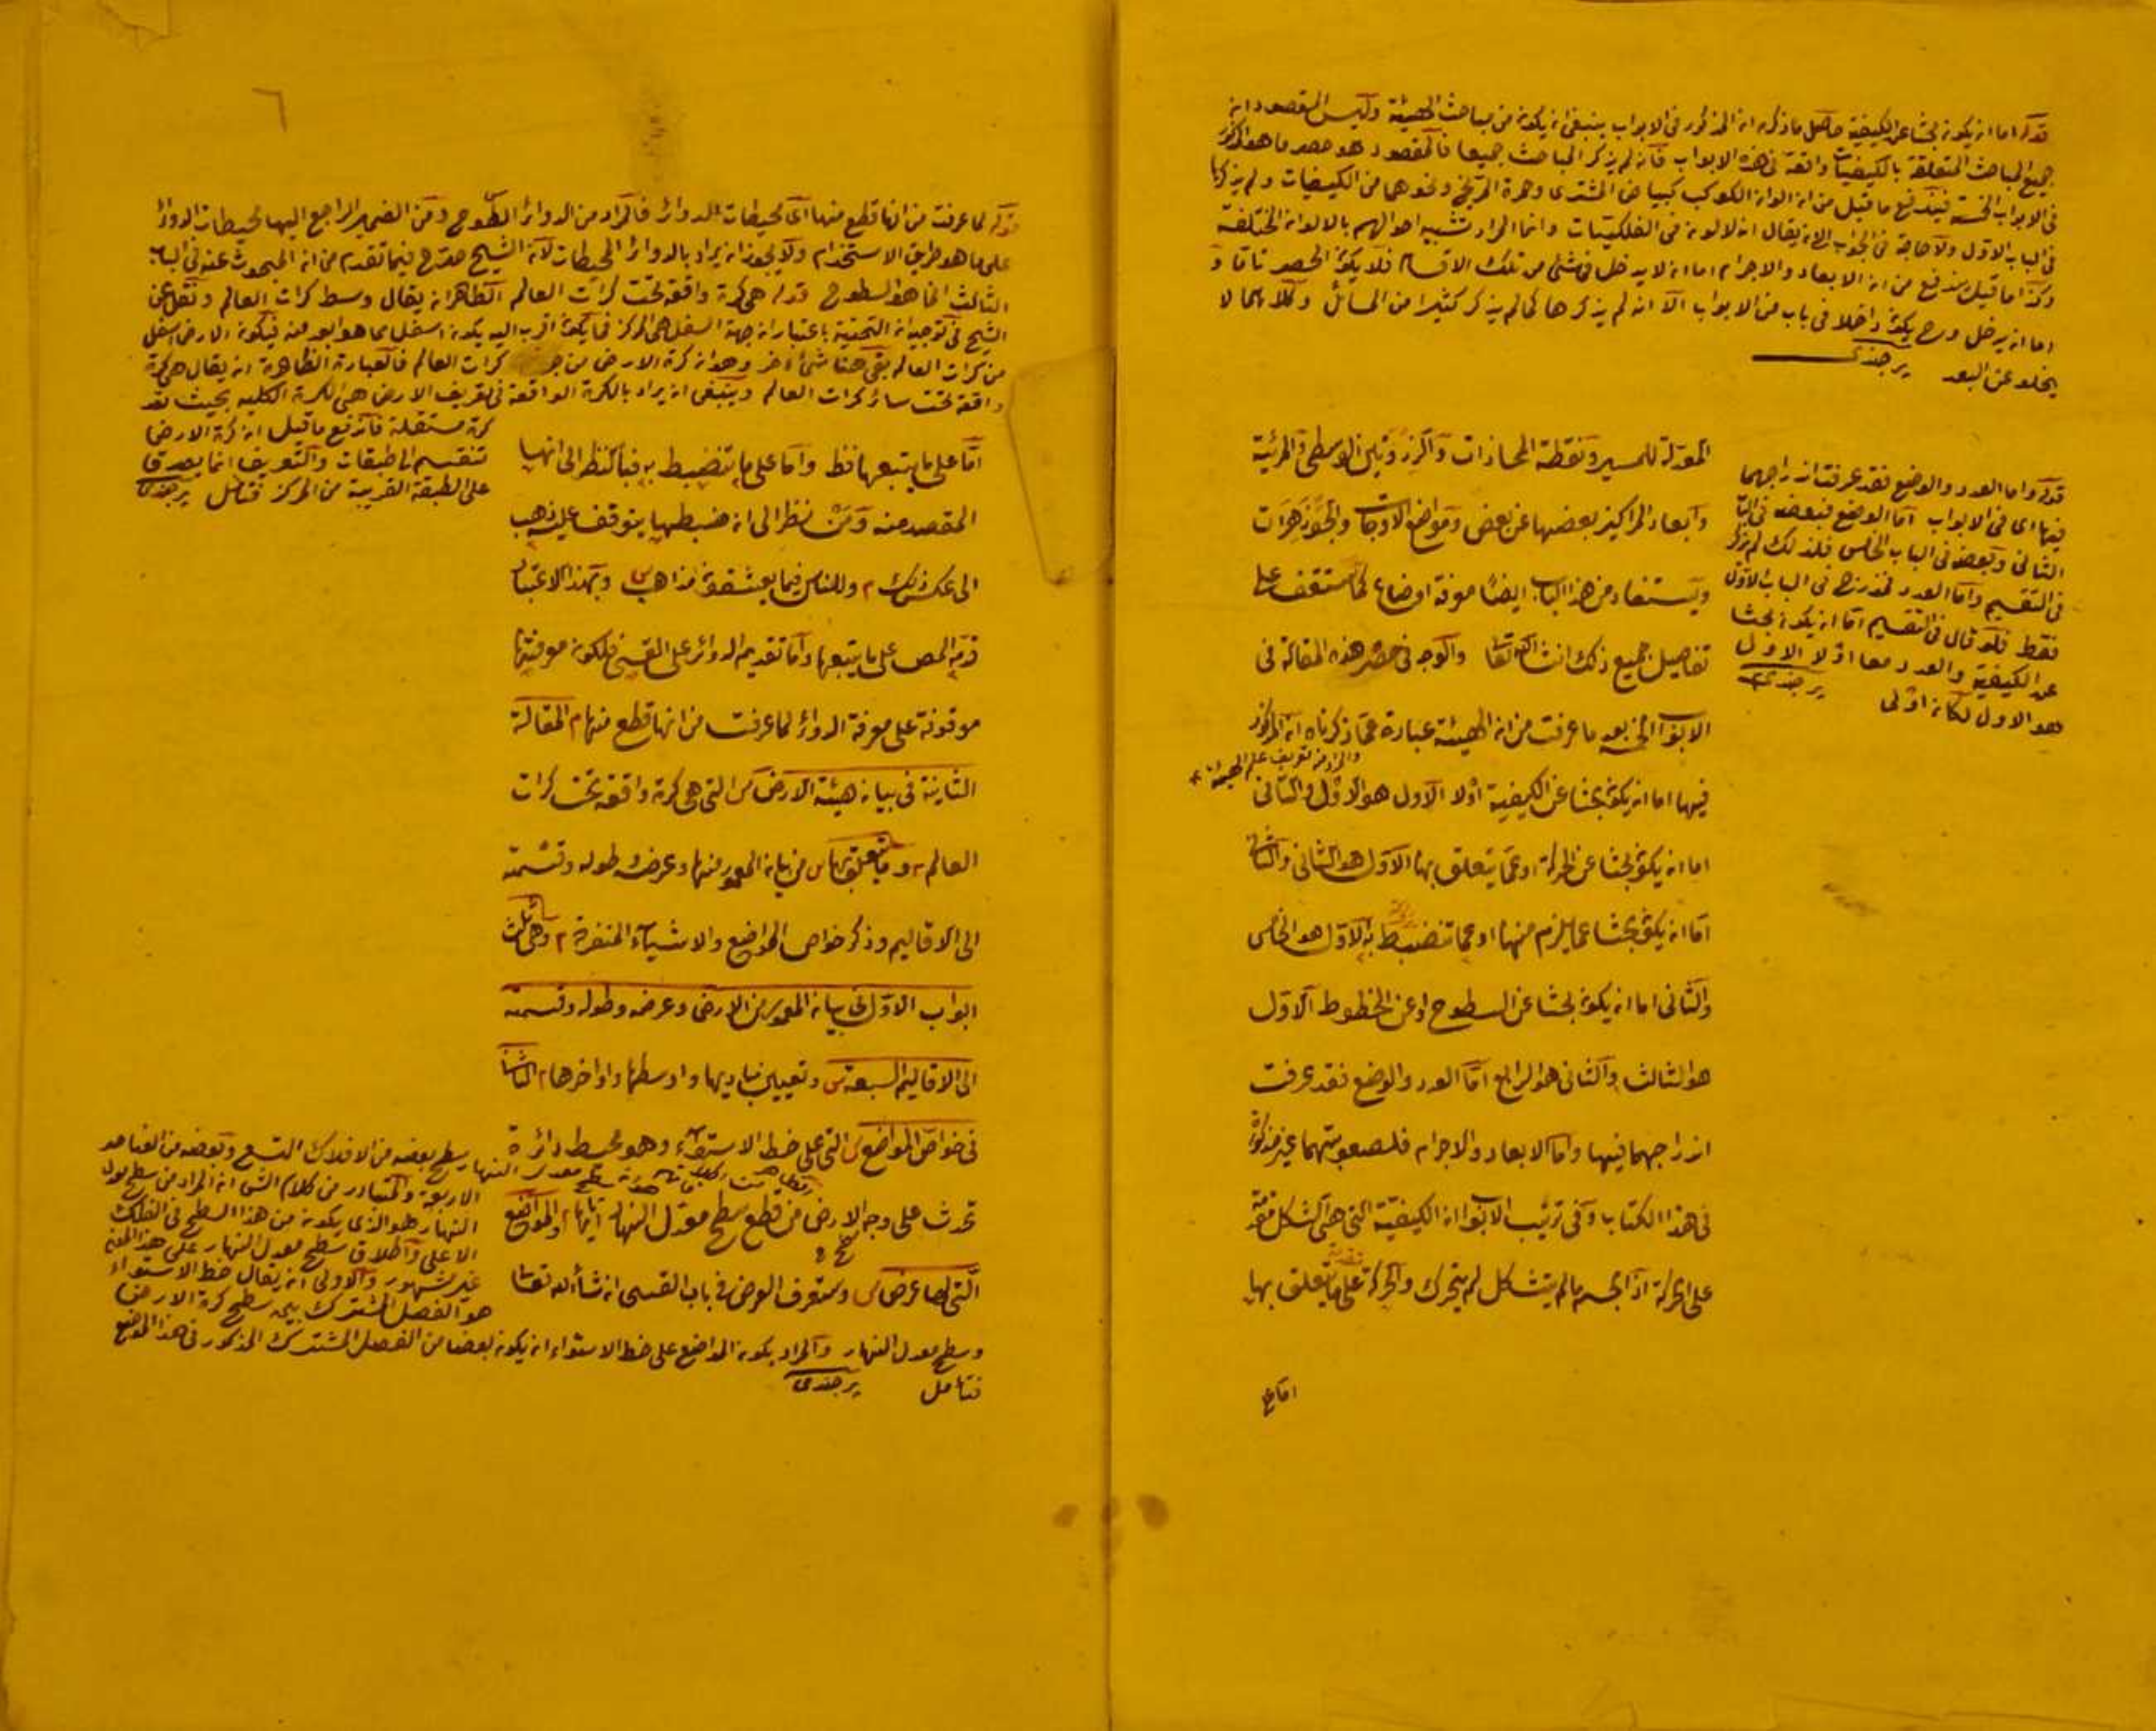 قوله اما ان يكون بحثا عن الكيفية حاصل ما ذكره ان المذكور في الابواب ينبغي ان يكون من مباحث الهيئة وليس المقصود ان
جميع المباحث المتعلقة بالكيفيات واقعة في هذه الابواب فانه لم يذكر المباحث جميعا فالمقصود هو حصر ما هو المذكور
في الابواب الخمسة فيندفع ما قيل من ان الوان الكواكب كبياض المشترى وحمرة المريخ ونحوهما من الكيفيات ولم يذكرها
في الباب الاول ولا حاجة في الجواب الى ان يقال انه لا لون في الفلكيات وانما المراد تشبيه احوالهم بالالوان المختلفة
وكذا ما قيل يندفع من ان الابعاد والاجرام اما ان لا يدخل في شئ من تلك الاقسام فلا يكون الحصر تاما و
اما ان يدخل وح يكون داخلا في باب من الابواب الا انه لم يذكرها كما لم يذكر كثيرا من المسائل وكلاهما لا
يخلو عن البعد برجندى
المعدلة للمسير ونقطة المحاذات والذروتين الوسطى والمرئية
وابعاد المراكز بعضها عن بعض ومواضع الاوجات والجوزهرات
ويستفاد من هذا الباب ايضا معرفة اوضاعها كما ستقف على
تفاصيل جميع ذلك انشاء الله تعا والوجه في حصر هذه المقالة في
الابواب الخمسة بعد ما عرفت من ان الهيئة عبارة عما ذكرناه ان المذكور
والمراد من تعريف علم الهيئة
فيها اما ان يكون بحثا عن الكيفية اولا الاول هو الاول والثاني
اما ان يكون بحثا عن الحركة او عما يتعلق بها الاول هو الثاني والثاني
اما ان يكون بحثا عما يلزم منها او عما تنضبط به الاول هو الخامس
والثاني اما ان يكون بحثا عن السطوح او عن الخطوط الاول
هو الثالث والثاني هو الرابع اما العدد والوضع فقد عرفت
اندراجهما فيها واما الابعاد والاجرام فلصعوبتهما غير مذكورة
في هذا الكتاب وفي ترتيب الابواب ان الكيفية التي هي الشكل مقدمة
على الحركة اذ الجسم ما لم يتشكل لم يتحرك والحركة على ما يتعلق بها
اما ع
قوله واما العدد والوضع فقد عرفت اندراجهما
فيها اى في الابواب اما الوضع فبعضه في الباب
الثاني وبعضه في الباب الخامس فلذلك لم يذكر
في التقسيم واما العدد فمندرج في الباب الاول
فقط فلو قال في التقسيم اما ان يكون بحثا
عن الكيفية والعدد معا اولا الاول
هو الاول لكان اولى برجندى
٦
قوله لما عرفت من انها قطع منها اى محيطات للدوائر فالمراد من الدوائر السطوح ومن الضمير الراجع اليها محيطات الدوائر
على ما هو طريق الاستخدام ولا يجوز ان يراد بالدوائر المحيطات لان الشيخ صرح فيما تقدم من ان المبحوث عنه في الباب
الثالث انما هو السطوح قوله هي كرة واقعة تحت كرات العالم الظاهر ان يقال وسط كرات العالم ونقل عن
الشيخ في توجيه ان التحتية باعتبار ان جهة السفل هي المركز فما يكون اقرب اليه يكون اسفل مما هو ابعد منه فيكون الارض اسفل
من كرات العالم بقى هنا شئ آخر وهو ان كرة الارض من كرات العالم فالعبارة الظاهرة ان يقال هي كرة
واقعة تحت سائر كرات العالم وينبغي ان يراد بالكرة الواقعة في تعريف الارض هي الكرة الكلية بحيث تعد
كرة مستقلة فاندفع ما قيل ان كرة الارض
تنقسم الى طبقات والتعريف انما يصدق
على الطبقة القريبة من المركز فتامل برجندى
اما على ما يتبعها فظ واما على ما تنضبط به فبالنظر الى انها
المقصد منه ومن نظر الى ان ضبطها يتوقف عليه ذهب
الى عكس ذلك وللناس فيما يعشقون مذاهب وبهذا الاعتبار
قدم المص على ما يتبعها واما تقديم الدوائر على القسى فلكون معرفتها
موقوفة على معرفة الدوائر لما عرفت من انها قطع منها م المقالة
الثانية في بيان هيئة الارض س التي هي كرة واقعة تحت كرات
العالم م وما يتعلق بها س من بيان المعمور منها وعرضه وطوله وقسمته
الى الاقاليم وذكر خواص المواضع والاشياء المتفرقة م وهي ثلث
ابواب الاول في بيان المعمور من الارض وعرضه وطوله وقسمته
الى الاقاليم السبعة س وتعيين مباديها واوسطها واواخرها م الثاني
في خواص المواضع س التي على خط الاستواء وهو محيط دائرة
تحدث على وجه الارض من قطع سطح معدل النهار اياها م والمواضع
التي لها عرض س وستعرف العرض في باب القسى ان شاء الله تعا
سطح بعضه من الافلاك التسع وبعضه من العناصر
الاربعة والمتبادر من كلام الش ان المراد من سطح معدل
النهار هو الذى يكون من هذا السطح في الفلك
الاعلى واطلاق سطح معدل النهار على هذا المعنى
غير مشهور والاولى ان يقال خط الاستواء
هو الفصل المشترك بين سطح كرة الارض
وسطح معدل النهار والمراد بكون المواضع على خط الاستواء ان يكون بعضا من الفصل المشترك المذكور في هذا الموضع
فتامل برجندى